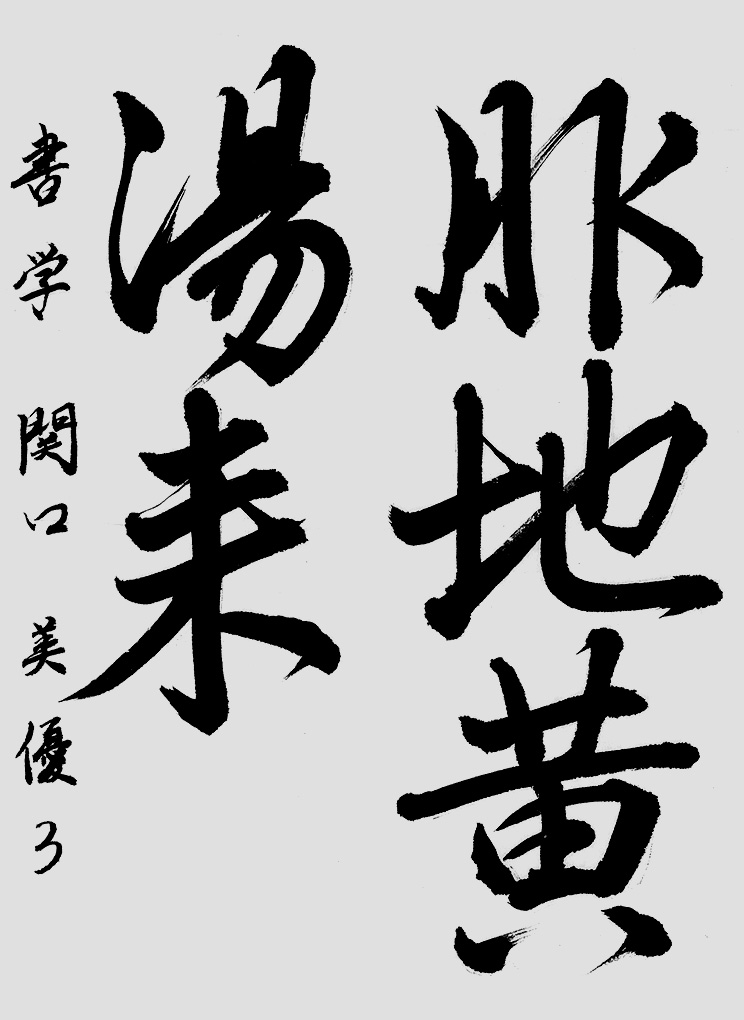 服地黄
湯来
書学 関口 美優